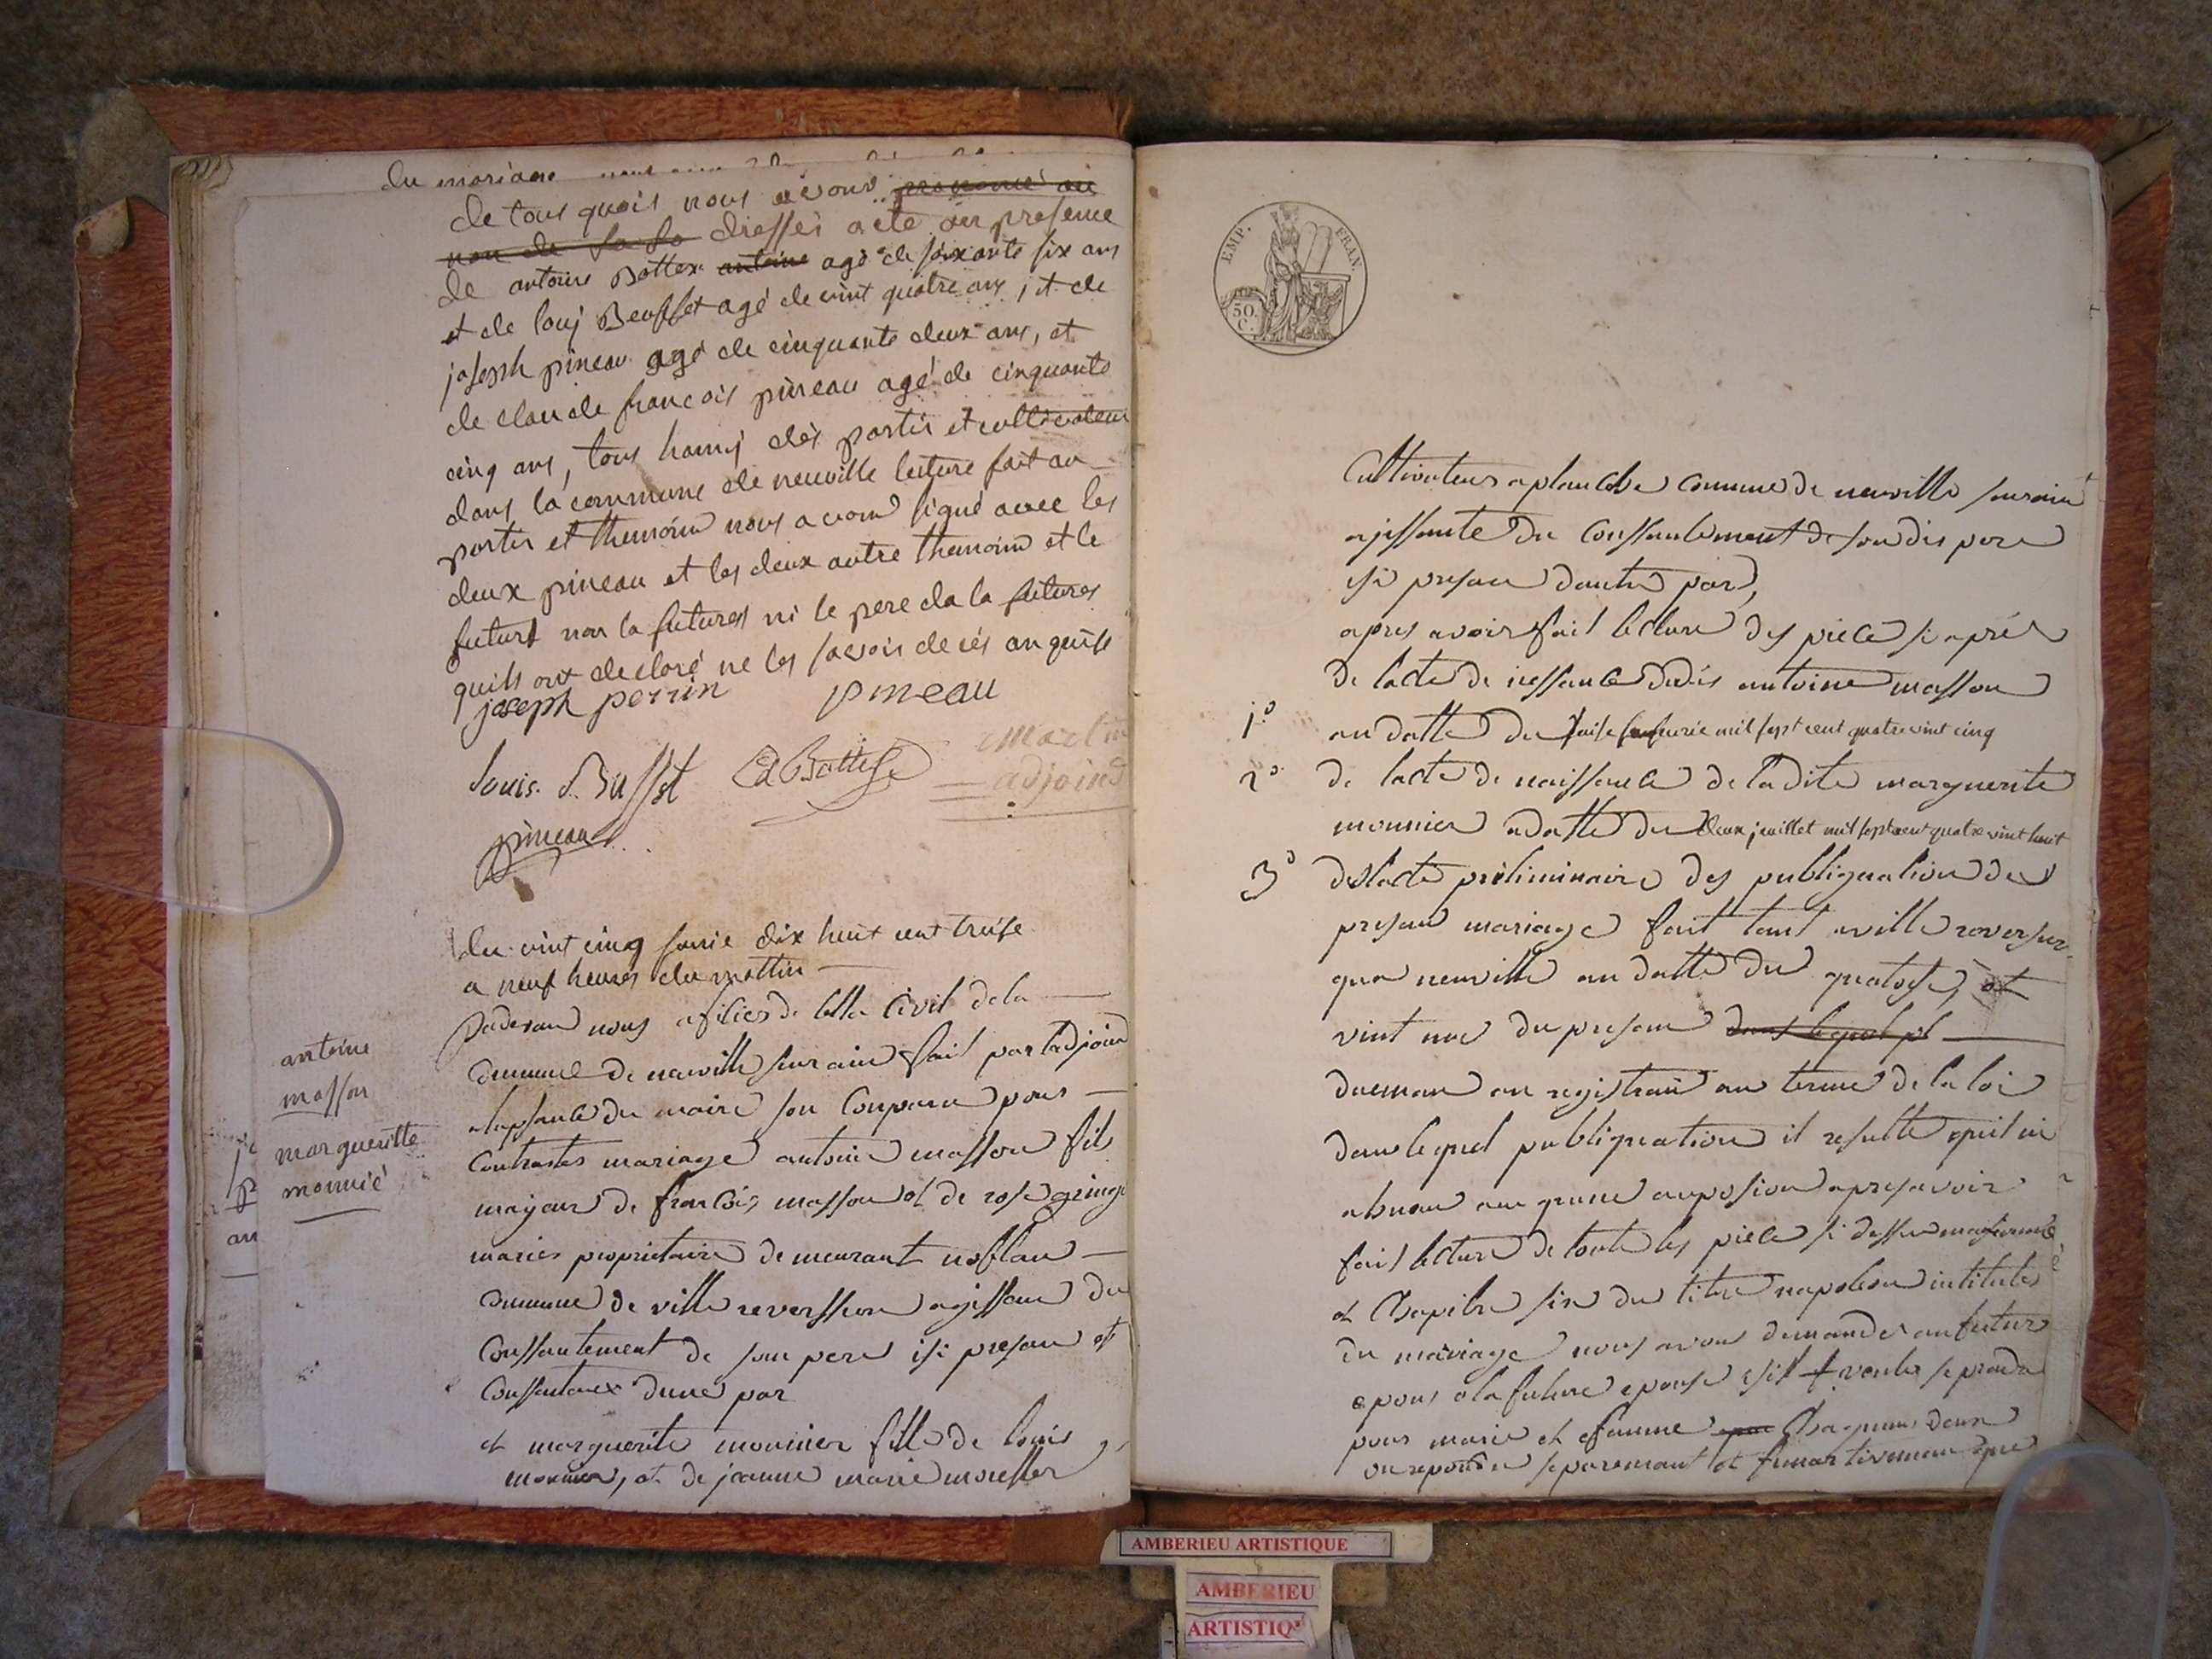 du mariage
de tous quois nous avons prononcé au
non de la lo dressés acte an presence
de antoine Bottex antoine agé de soixante six ans
et de louj Beuffet agé de vint quatre ans, et de
joseph pineau agé de cinquante deux ans, et
de claude francois pineau agé de cinquante
cinq ans, tous hamis des partis et cultivateur
dans la commune de neuville lecture fait au
partis et themoins nous avons signé avec les
deux pineau et les deux autre themoins et le
futurs non la futures ni le pere da la futures
quils ont declaré ne les savoir de cés anquist
joseph perrin pineau
Louis Buffet martin
adjoind
pineau
du vint cinq janvie dix huit cent treise
a neuf heures du mattin
Padevant nous ofilier de letta Civil de la
Commune de neuville sur ain fait par ladjoint
alapsance du maire son Conparu pour
Contrastes mariage antoine masson fils
majeur de francois masson et de rose
maries proprietaire demeurant noblan
Commune de ville reverssure agissant du
Conssantement de son pere isi presant et
Conssantant dune par
et marguerite mounier fille de louis
mounier, et de jeanne marie
antoine
masson
margueritte
monnié
an
EMP. FRAN.
50. C.
Cultivateur a planche Commune de neuville sur ain
agissante du Conssantement de son dis pere
isi presan dautre par,
apres avoir fait lecture des piece si aprés
de lacte de nessance dudis antoine masson
1º an datte du saise janvrie mil sept cent quatre vint cinq
2º de lacte de naissance de ladite marguerite
mounier a datte du deux juillet mil sept cent quatre vint huit
3º de lacte préliminaire des publiquation du
presant mariage fait tant a ville reversure
qua neuville an datte du quatorse, et
vint un du presant dans lequel pl
dueman anregistrais au terme de la loi
dans lequel publiquation il resulte quil ni
a hunau aucqune auposion apres avoir
fait lecture de toute les piece si dessu mansionné
et Chapitre sis du titre napoleon intitules
du mariage nous avons demandes au futur
epous et la future epouse sil veules se prandre
pour marie et famme que Chaquns deux
on repondu separemant et afirmativeman que
AMBERIEU ARTISTIQUE
AMBERIEU
ARTISTIQ